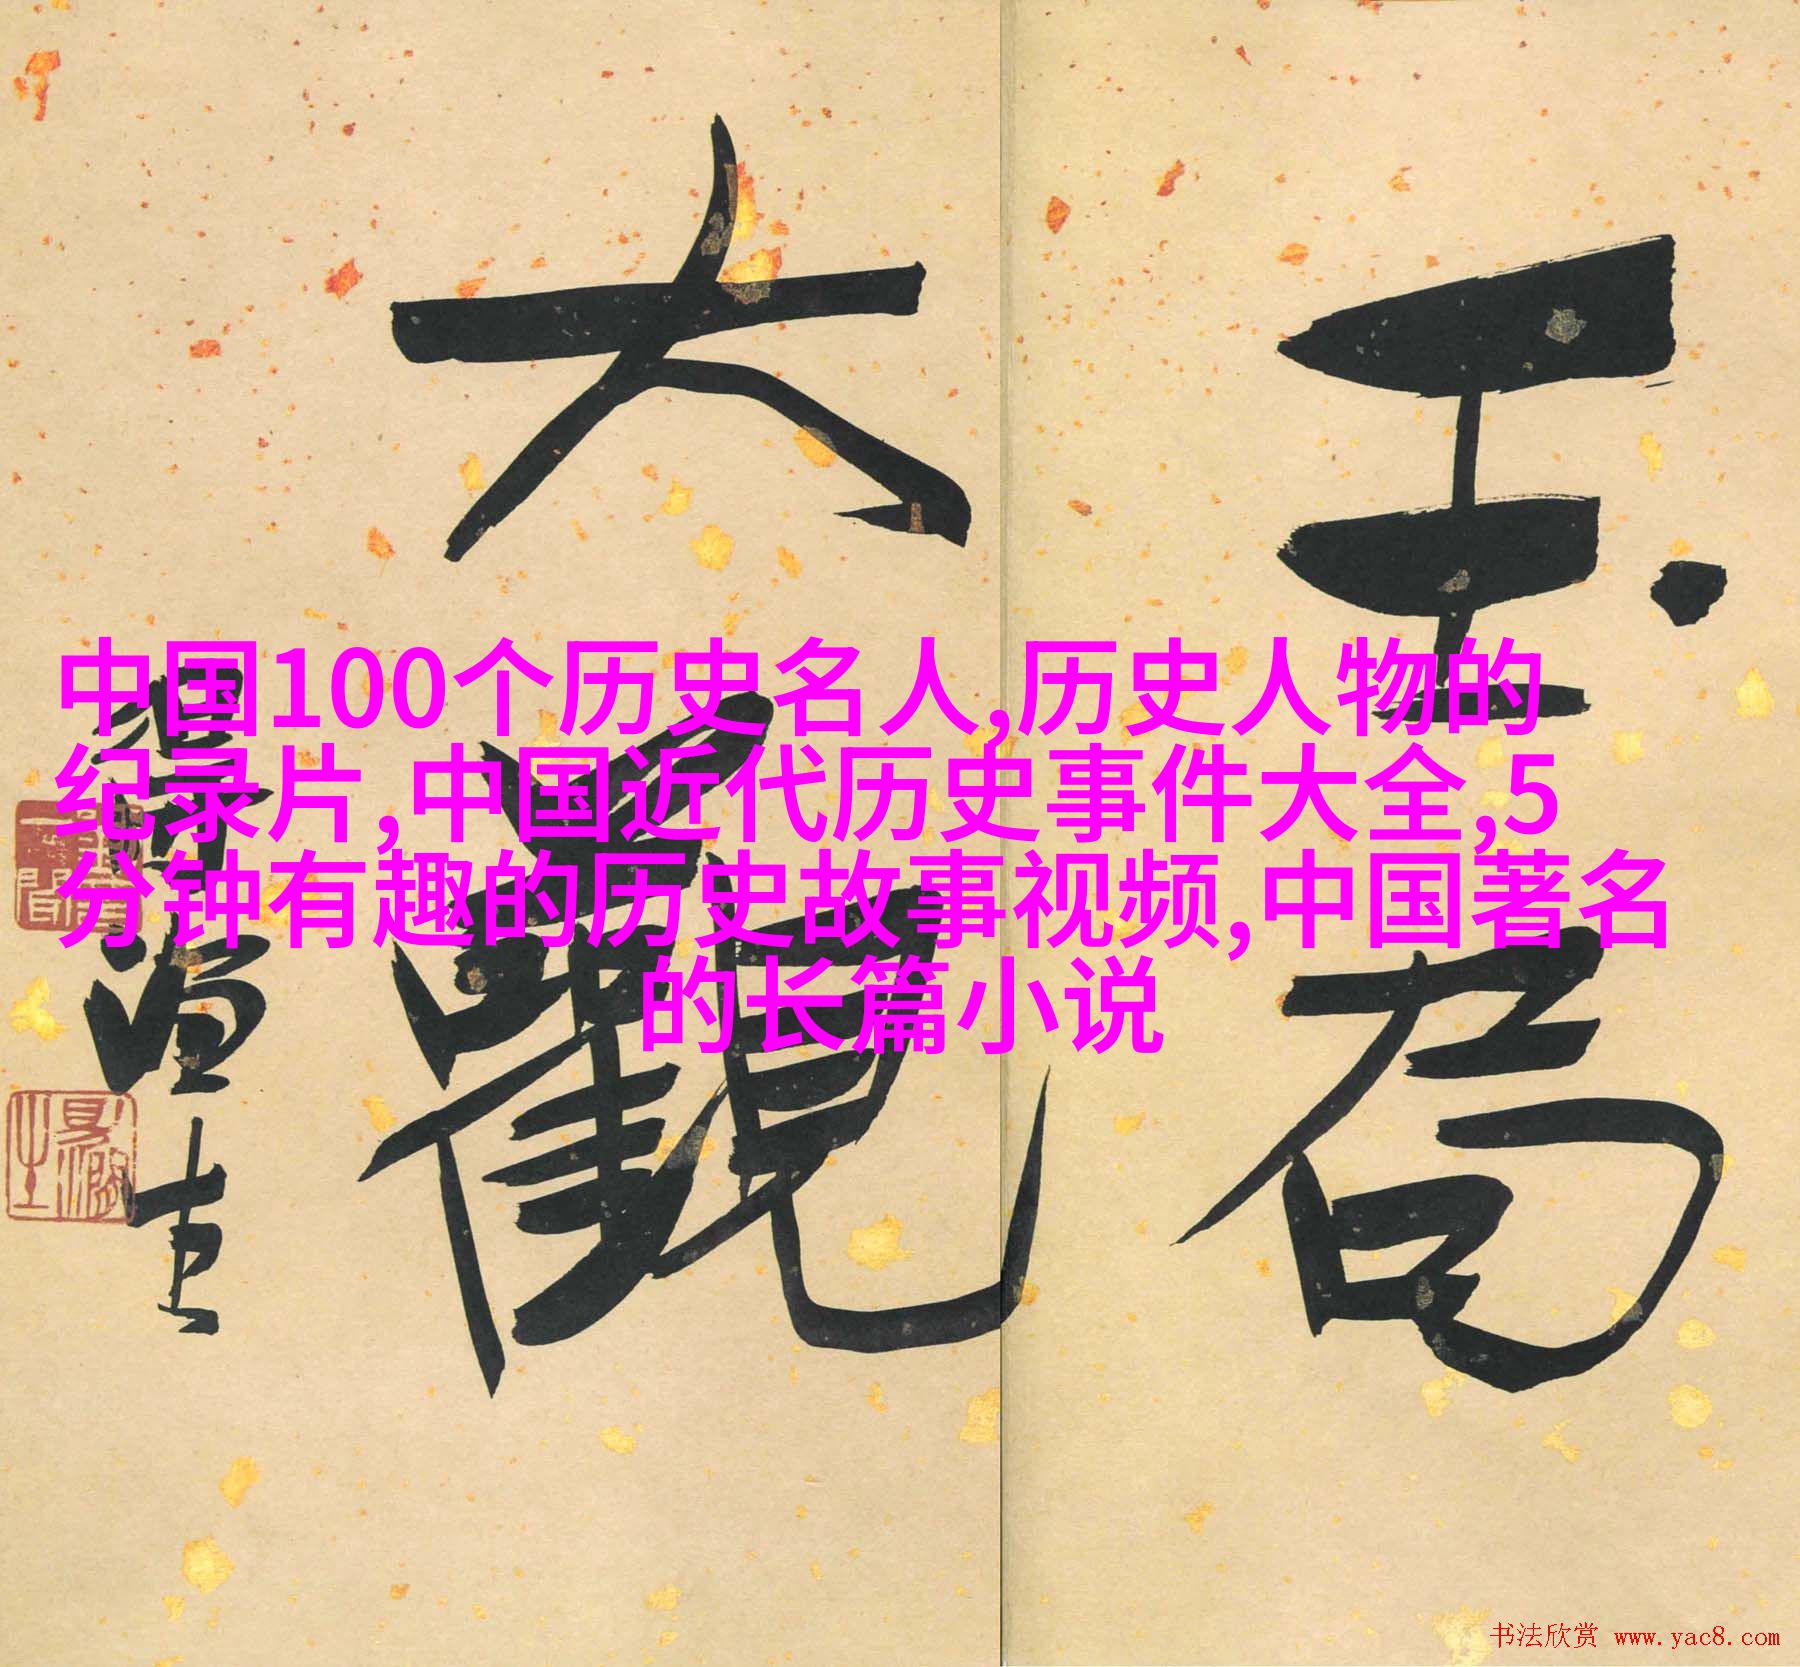 中国100个历史名人,历史人物的
纪录片,中国近代历史事件大全,5
分钟有趣的历史故事视频,中国著名
的长篇小说
玉局
大觀
书法欣赏 www.yac8.com